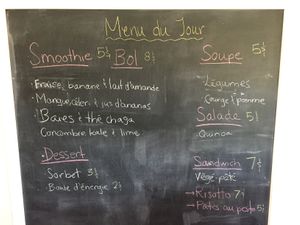 Menu du Jour
Smoothie 5$ Bol 8$
Fraise, banane & lait d'amande
Mangue, céleri & jus d'ananas
Baies & thé chaga
Concombre, kale & lime
Dessert
· Sorbet 3$
· Boule d'énergie 2$
Soupe 5$
Légumes
Courge & pomme
Salade 5$
Quinoa
Sandwich 7$
Végé-pâté
→ Risotto 7$
→ Pâtes au pesto 5$